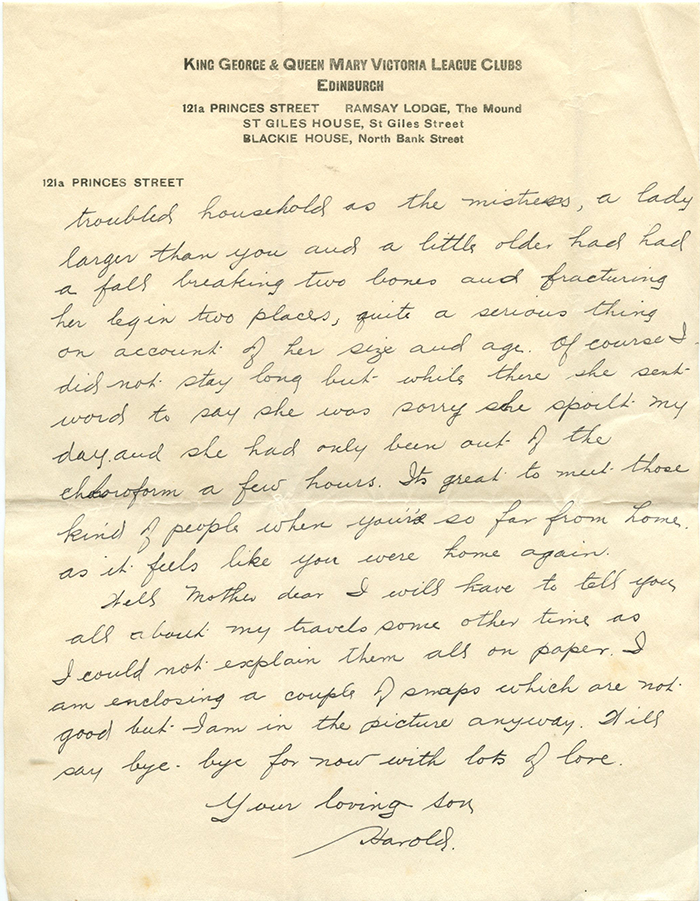 KING GEORGE & QUEEN MARY VICTORIA LEAGUE CLUBS
EDINBURGH
121a PRINCES STREET RAMSAY LODGE, The Mound
ST GILES HOUSE, St Giles Street
BLACKIE HOUSE, North Bank Street
121a PRINCES STREET
troubled household as the mistress, a lady
larger than you and a little older had had
a fall breaking two bones and fracturing
her leg in two places, quite a serious thing
on account of her size and age. Of course I
did not stay long but while there she sent
word to say she was sorry she spoilt my
day. and she had only been out of the
chloroform a few hours. Its great to meet those
kind of people when you're so far from home.
as it feels like you were home again.
Well Mother dear I will have to tell you
all about my travels some other time as
I could not explain them all on paper. I
am enclosing a couple of snaps which are not
good but I am in the picture anyway. Will
say bye-bye for now with lots of love.
Your loving son
Harold.